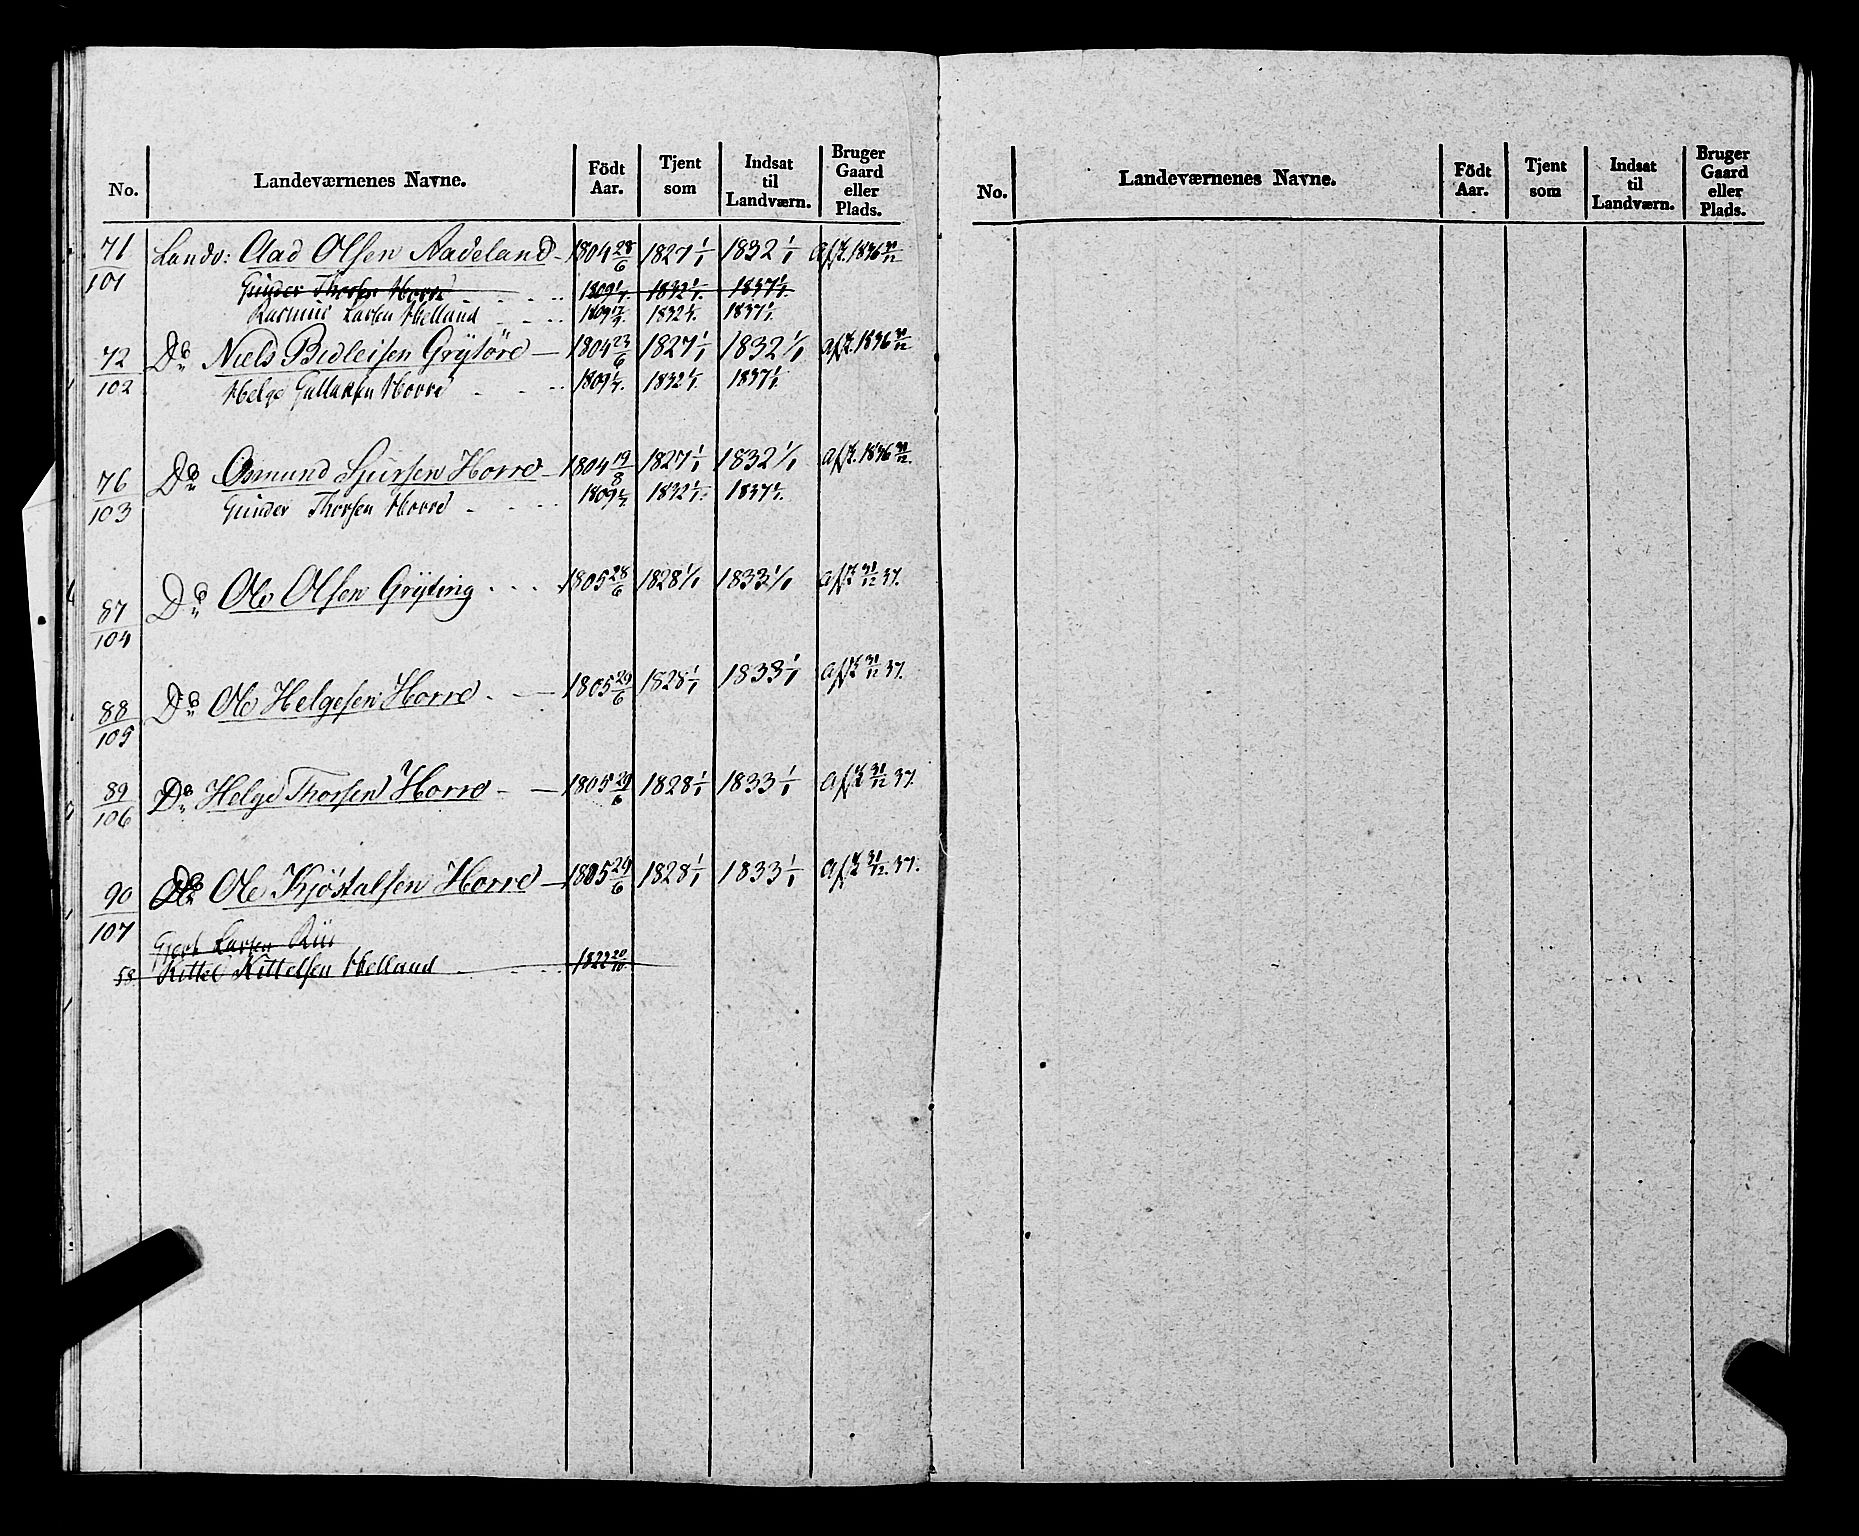 No. Landeværnenes Navne. Födt Aar. Tjent som Indsat til Landværn. Bruger Gaard eller Plads.
71 Landv: Aad Olsen Aadeland 1804 28/6 1827 1/1 1832 1/1 afsk. 1836 31/12
101 Gunder Thorsen Horre 1809 1/7. 1832 1/1. 1837 1/1.
Rasmus Larsen Helland 1809 17/9. 1832 1/1. 1837 1/1.
72 Do Niels Bidleisen Grytöre 1804 23/6 1827 1/1 1832 1/1 afsk. 1836 31/12
102 Helge Gullaksen Horre 1809 1/7. 1832 1/1. 1837 1/1.
76 Do Osmund Sjursen Horre 1804 19/8 1827 1/1 1832 1/1 afsk. 1836 31/12.
103 Gunder Thorsen Horre 1809 1/7. 1832 1/1. 1837 1/1.
87 Do Ole Olsen Gryting 1805 28/6 1828 1/1 1833 1/1 afsk 31/12 37.
104
88 Do Ole Helgesen Horre 1805 29/6 1828 1/1 1833 1/1 afsk 31/12 37.
105
89 Do Helge Thorsen Horre 1805 29/6 1828 1/1 1833 1/1 afsk 31/12 37.
106
90 Do Ole Kjöstalsen Horre 1805 29/6 1828 1/1 1833 1/1 afsk 31/12. 37.
107
Larsen
58 Kittel Kittelsen Helland 1822 20/10.
No. Landeværnenes Navne. Födt Aar. Tjent som Indsat til Landværn. Bruger Gaard eller Plads.